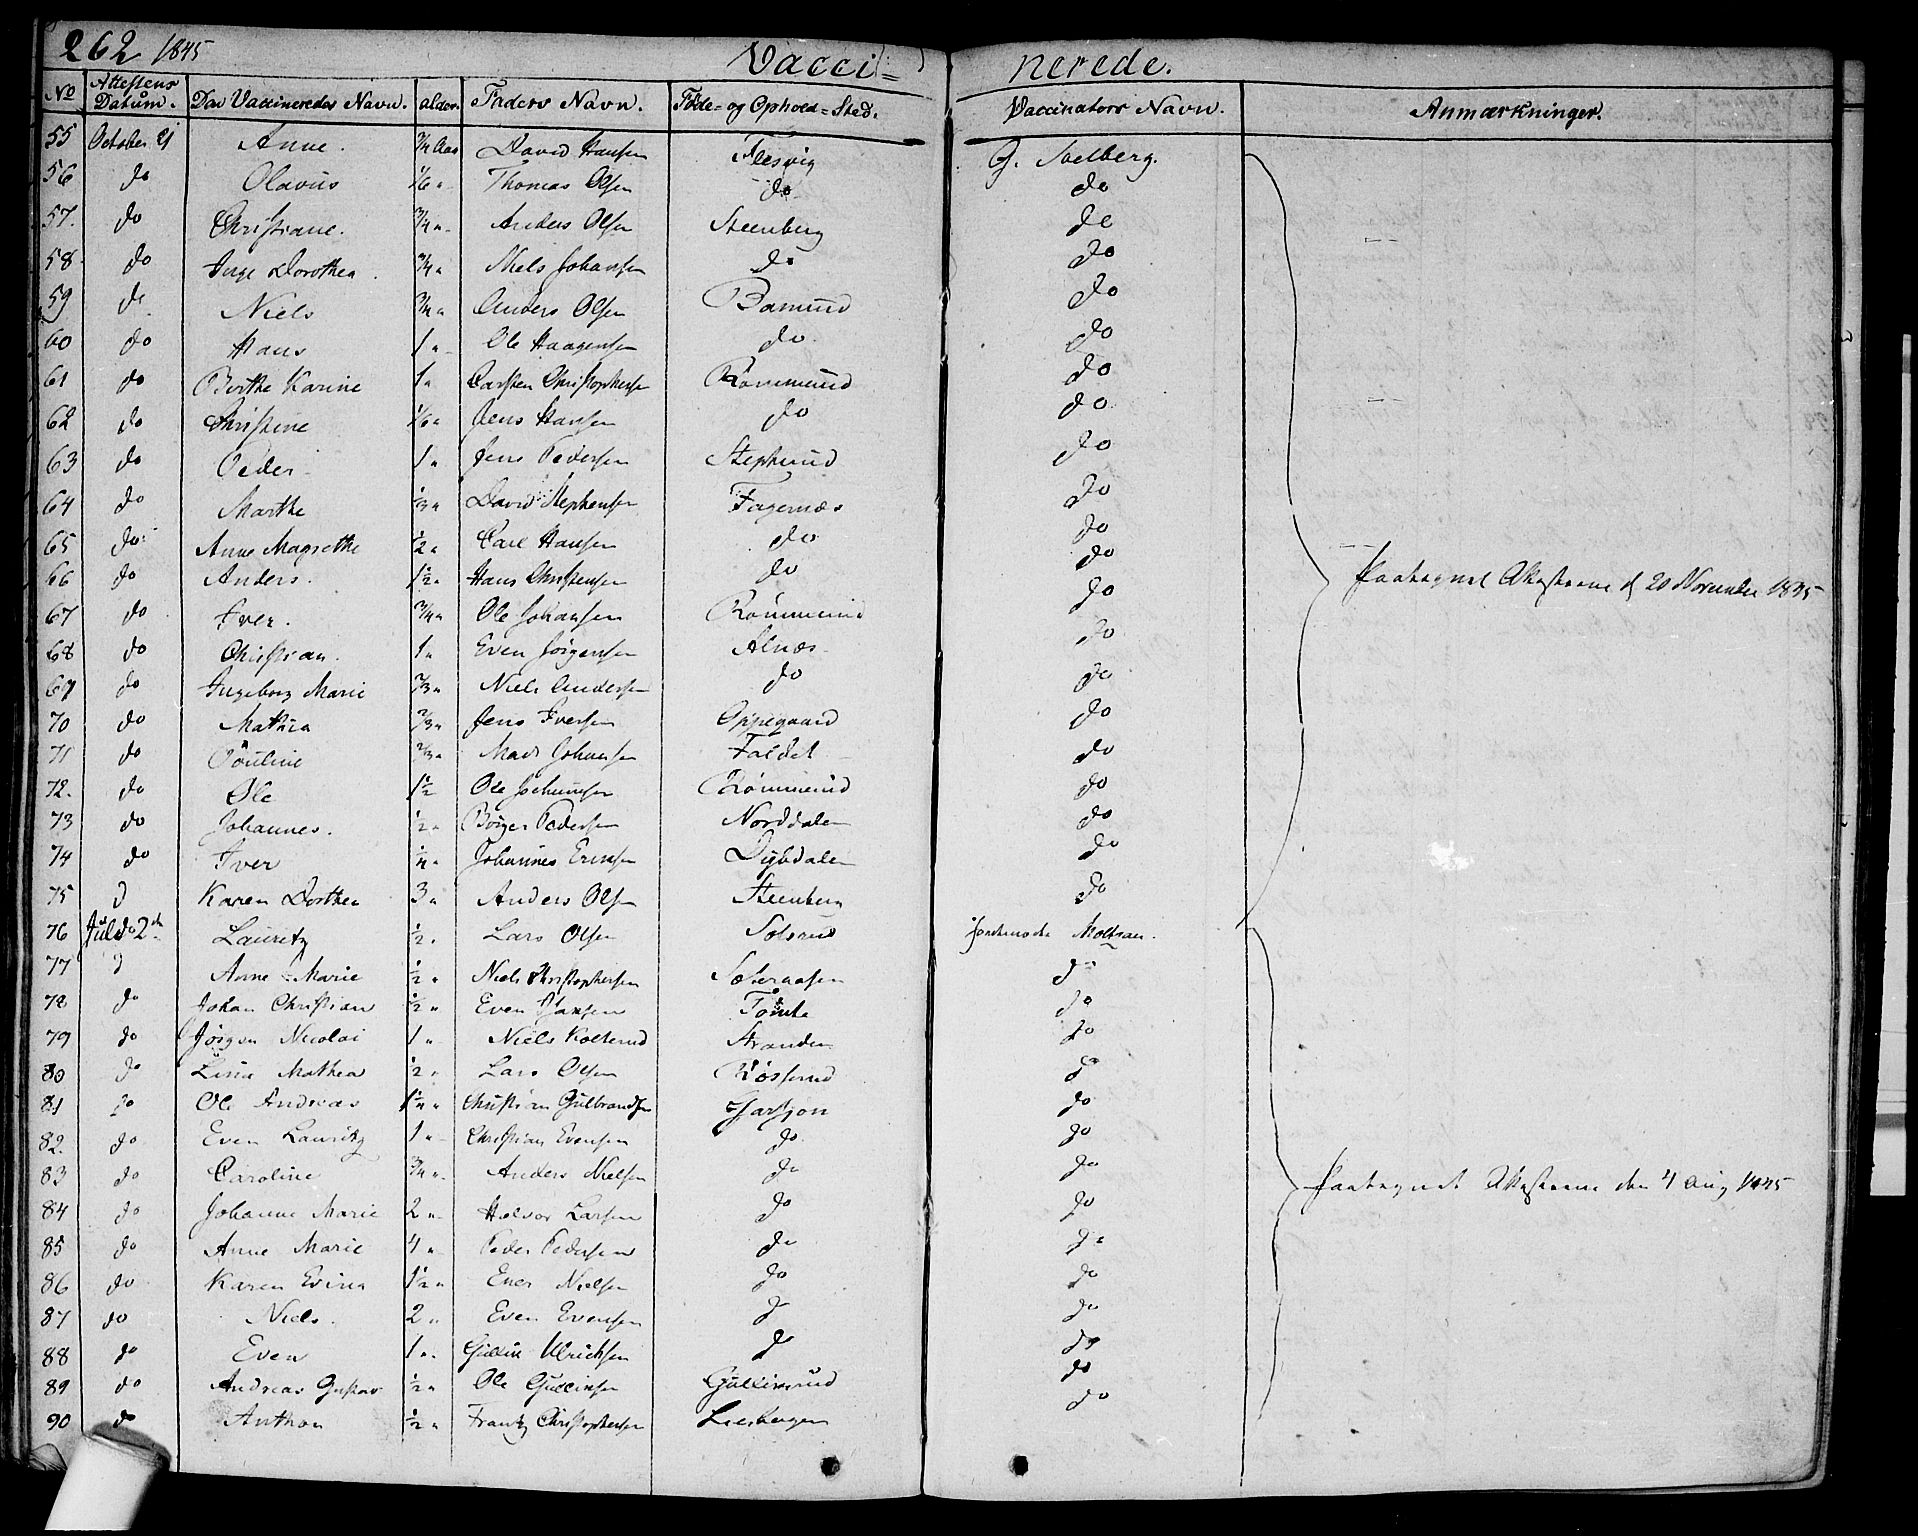 262 1845 Vaccinerede.
No Attestens Datum. Den Vaccineredes Navn. alder. Faders Navn. Føde- og Ophold-Sted. Vaccinators Navn. Anmærkninger.
55 October 21 Anne. 3/4 Aar David Hansen Flesvig G. Soelberg.
56 do Olavus 1/6 " Thomas Olsen do do
57. do Christiane. 3/4 " Anders Olsen Steenberg do
58 do Inge Dorothea. 3/4 " Niels Johansen do do
59 do Niels 3/4 " Anders Olsen Bamund do
60 do Hans 1 " Ole Haagensen do. do
61 do Berthe Karine 1 " Carsten Christophersen Rømmund do
62 do Christine 1/6 " Jens Hansen do do
63 do Peder 1 " Jens Pedersen Stephsrud do
64 do Marthe 1/3 " David Stephensen Fagernæs do
65 do Anne Magrethe 1/2 " Carl Hansen do do
66 do Anders. 1 1/2 " Hans Christensen do do
Paategnet Attesterne d 20 November 1845
67 do Iver. 3/4 " Ole Johansen Rømmerud do
68 do Christian. 1 " Even Jörgensen Alnæs do
69 do Ingeborg Marie 2/3 " Niels Andersen do do
70 do Mathea 2/3 " Jens Iversen Oppegaard do
71 do Pouline 2/3 " Mads Johansen Faldet do
72. do Ole 1 1/2 Ole Jochumsen Rømmerud do
73 do Johannes. 1/2 " Börger Pedersen Norddalen do
74 do Iver 1/4 " Johannes Ericksen Dybdalen do
75 d Karen Dorthea 3 " Anders Olsen Steenberg do
76 Juli d 2den Lauritz 1/2 " Lars Olsen Solsrud Jordemoder Moltzau.
77 d Anne Marie 1/2 " Niels Christophersen Sæteraasen do
78 do Johan Christian 1/2 " Even Hansen Tömte do
79 do Jörgen Nicolai 1 " Niels Kolterud Stranden do
80 do Lisne Mathea 1/2 " Lars Olsen Røsserud do
81 do Ole Andreas 1 1/4 " Christian Gulbrandsen Harsjøn do
82. do Even Lauritz 1 " Christian Evensen do do
83 do Caroline 3/4 " Anders Nielsen do do
Paategnet Attesterne den 4 Aug 1845
84 do Johanne Marie 2 " Halvor Larsen do do
85 do Anne Marie 4 " Peder Pedersen do do
86 do Karen Evine 1 1/2 " Ener Nielsen do do
87 do Niels. 2 " Even Evensen d do
88 do Even 1 " Gullik Ulrichsen d do
89 do Andreas Gustav 1/2 " Ole Gullinsen Gullinsrud do
90 do Anthon 1/2 " Frantz Christophersen Liesbergen do